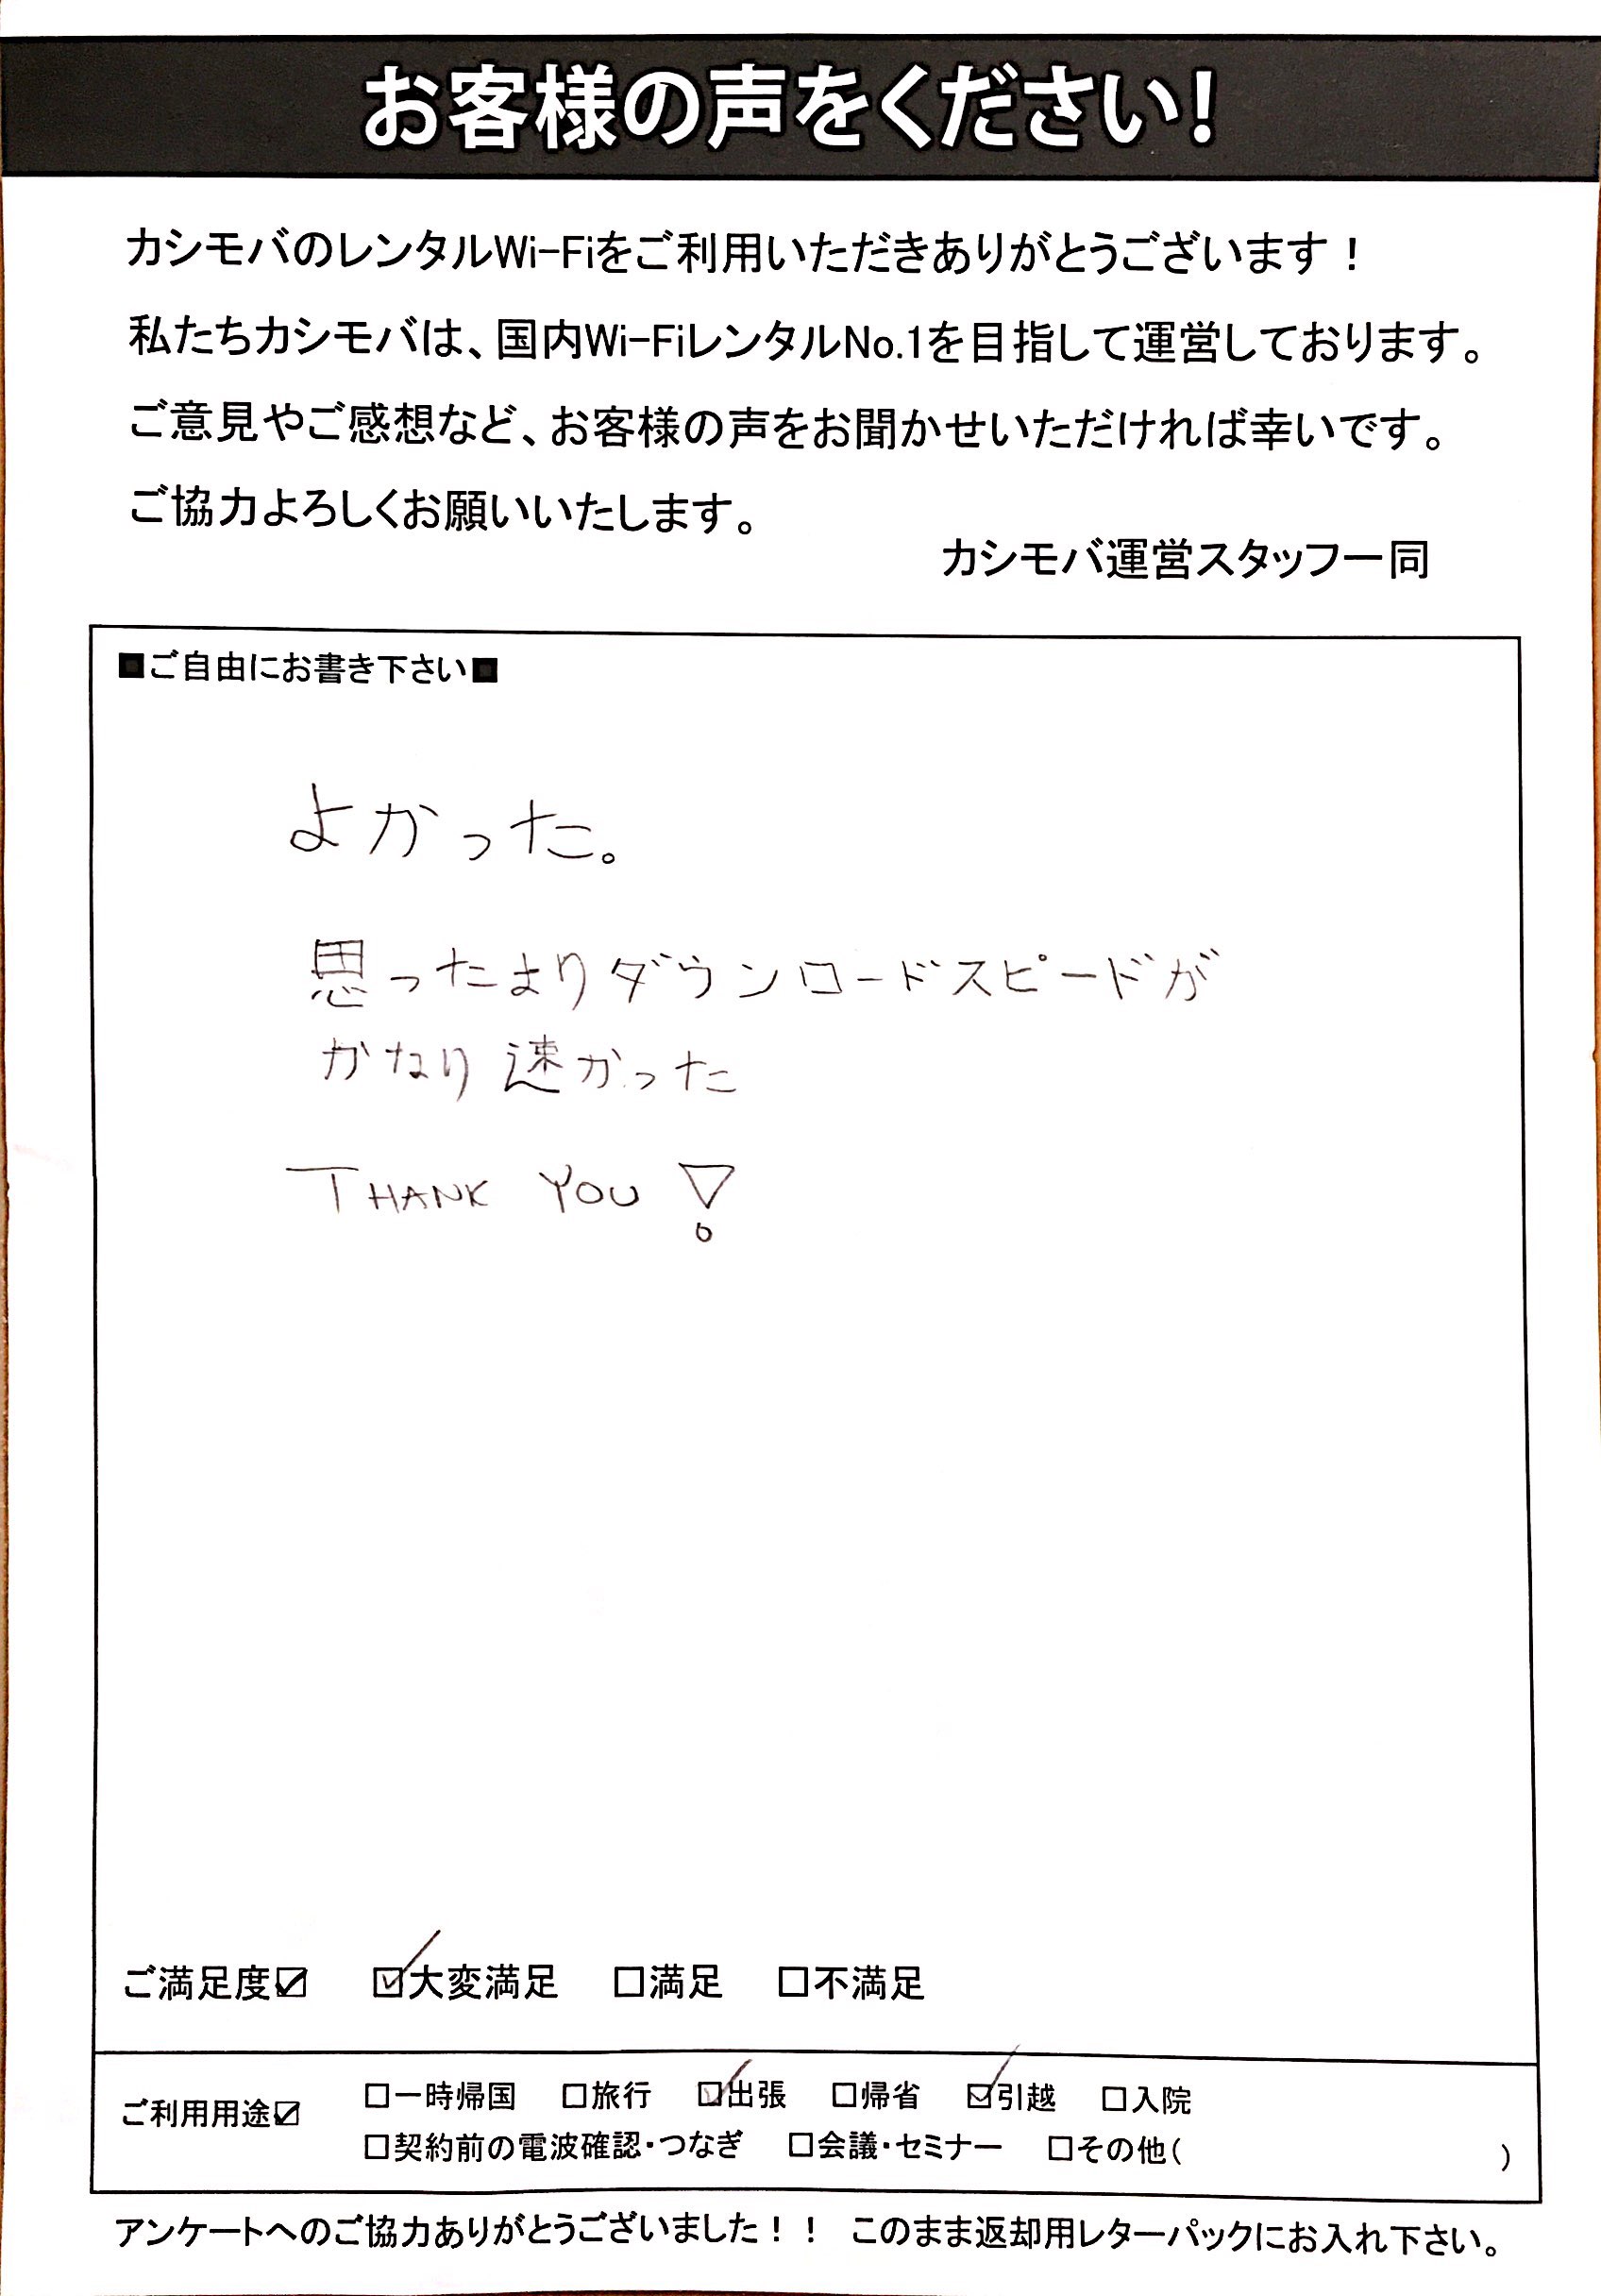 お客様の声をください!
カシモバのレンタルWi-Fiをご利用いただきありがとうございます！
私たちカシモバは、国内Wi-FiレンタルNo.1を目指して運営しております。
ご意見やご感想など、お客様の声をお聞かせいただければ幸いです。
ご協力よろしくお願いいたします。
カシモバ運営スタッフ一同
■ご自由にお書き下さい■
よかった。
思ったよりダウンロードスピードが
かなり速かった
THANK YOU !
ご満足度☑ ☑大変満足 □満足 □不満足
ご利用用途☑ □一時帰国 □旅行 ☑出張 □帰省 ☑引越 □入院
□契約前の電波確認・つなぎ □会議・セミナー □その他( )
アンケートへのご協力ありがとうございました！！ このまま返却用レターパックにお入れ下さい。